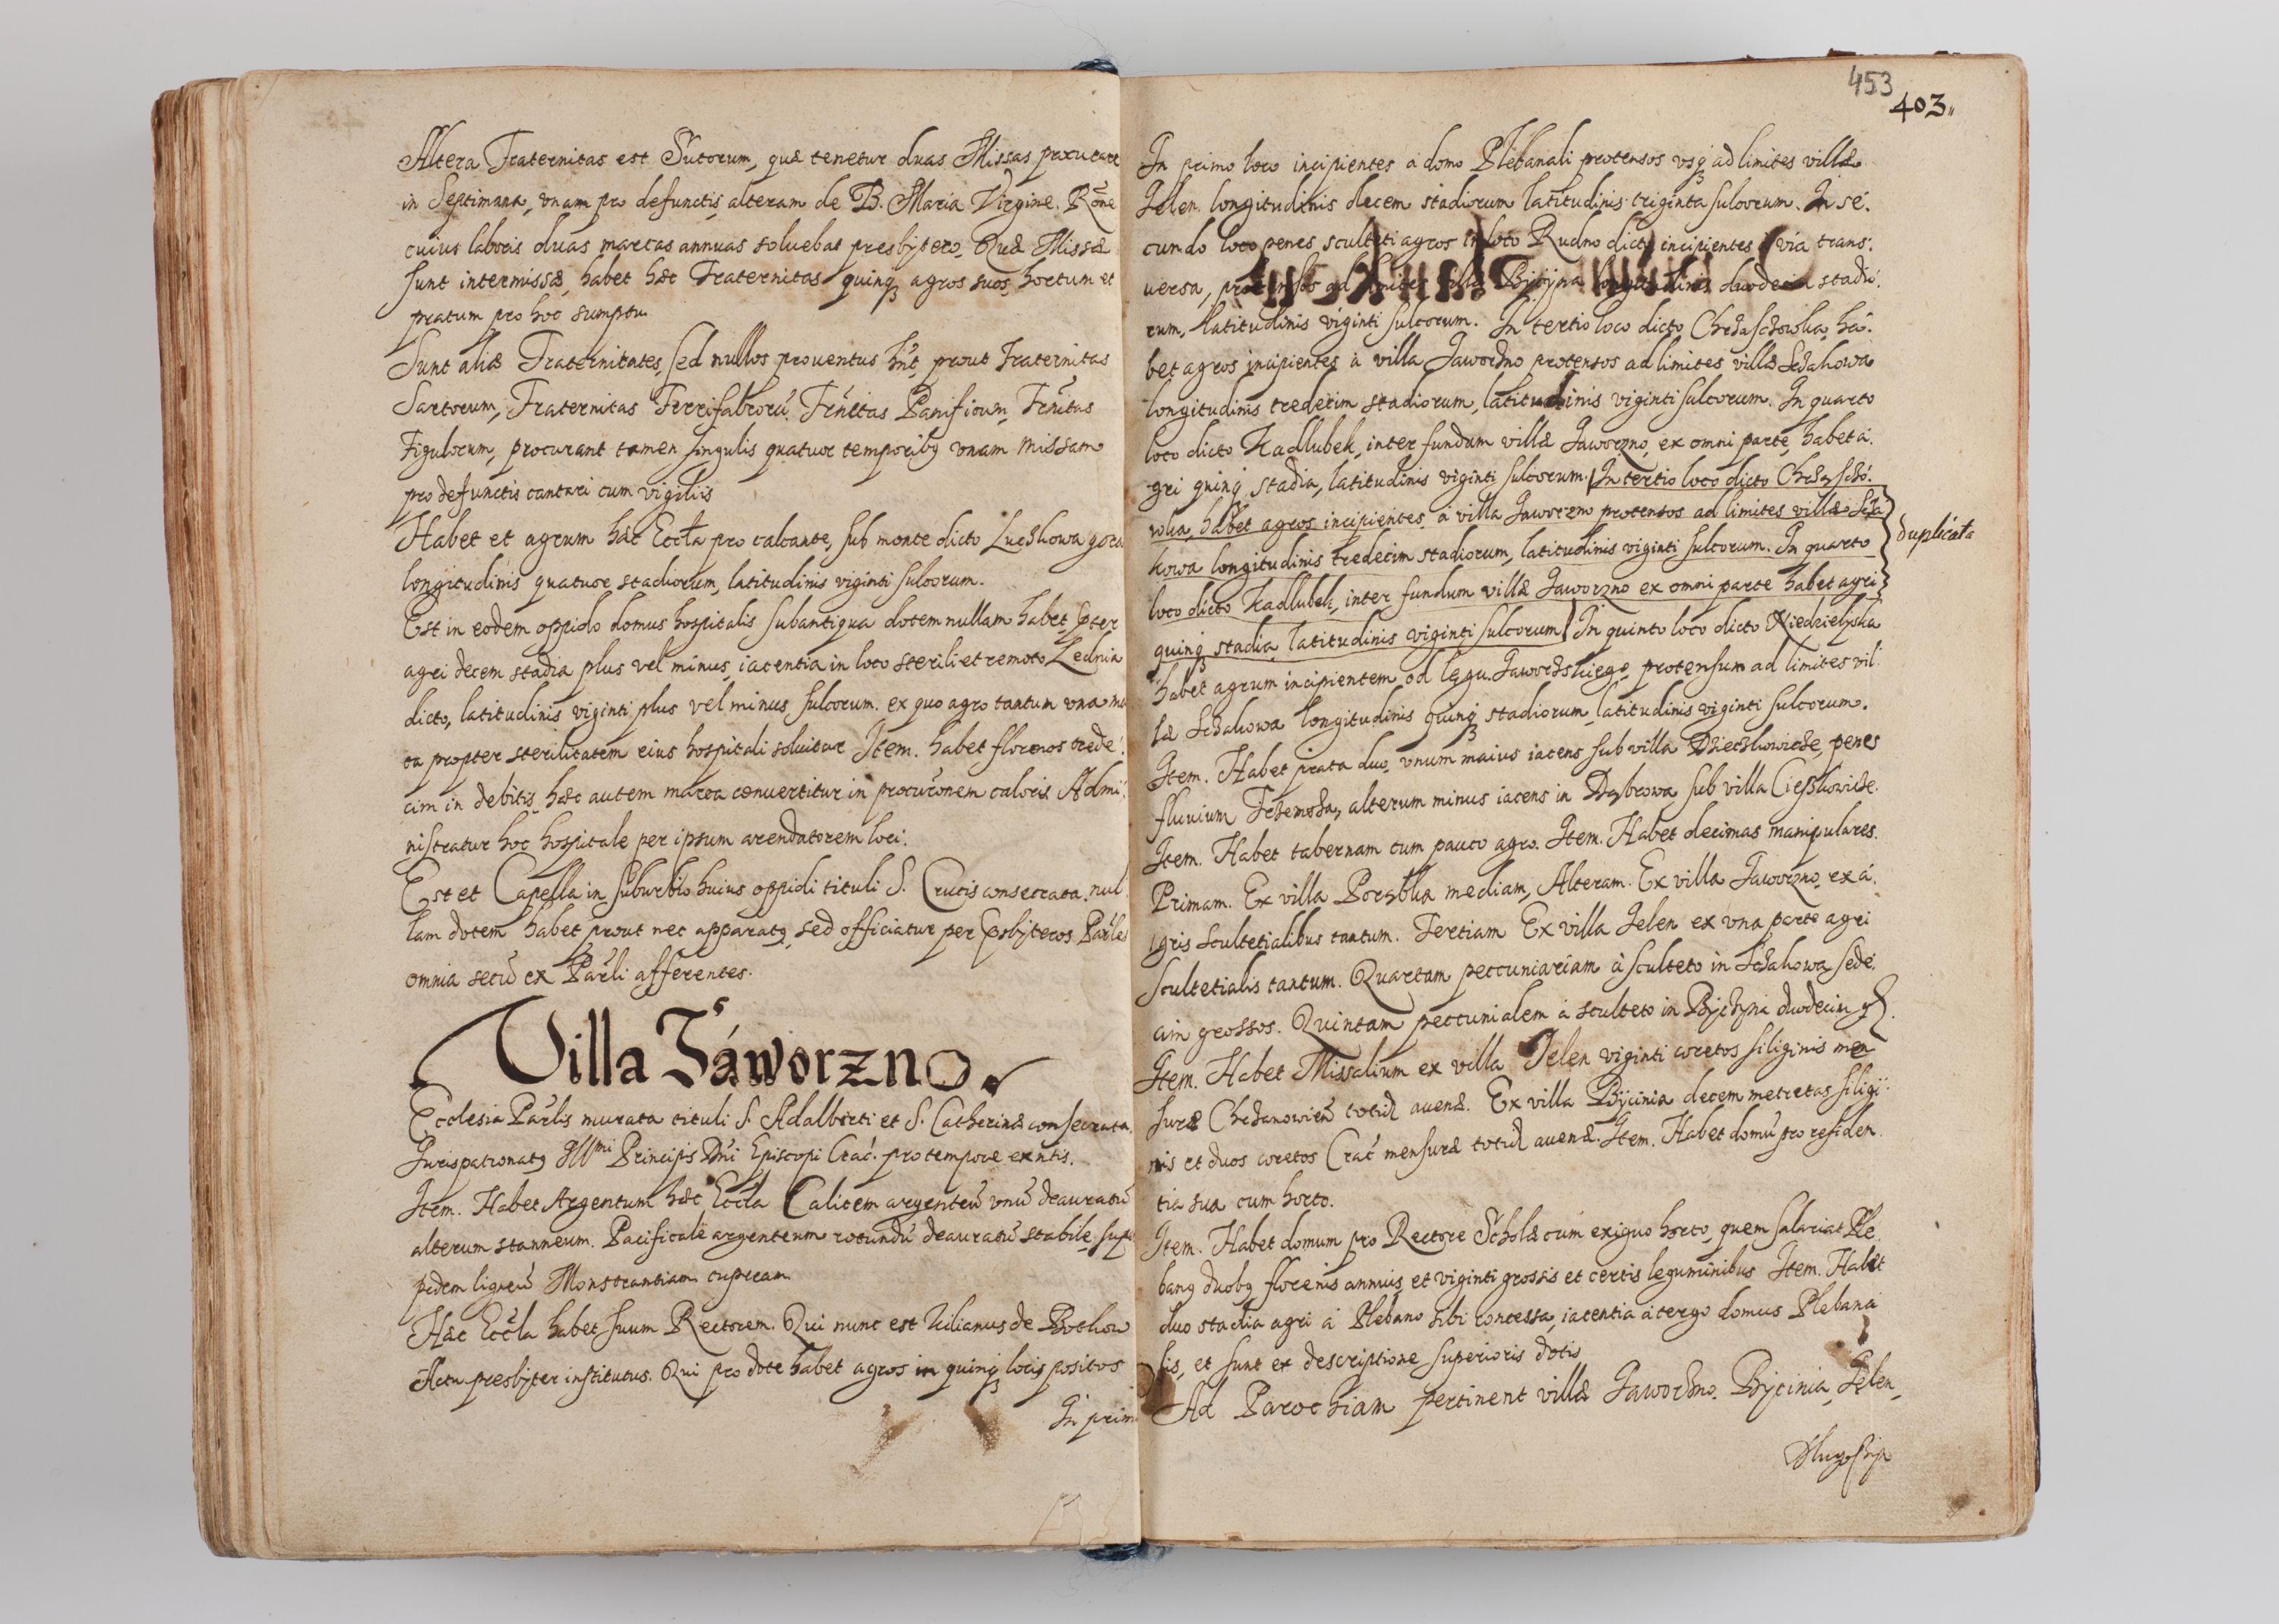 Altera Fraternitas est Sutorum, quæ tenetur duas Missas procurare
in Septimana, vnam pro defunctis, alteram de B. Maria Virgine. Rõne
cuius laboris duas marcas annuas soluebat presbytero, Quæ Missæ
sunt intermissæ, habet hæc Fraternitas quinqȝ agros suos, hortum et
pratum pro hoc sumptu
Sunt aliæ Fraternitates, sed nullos prouentus hñt, prout Fraternitas
Sartorum, Fraternitas Ferrifabrorũ. Frñitas Panificum, Frñitas
Figulorum, procurant tamen singulis quatuor temporibȝ vnam Missam
pro defunctis cantari cum vigiliis
Habet et agrum hæc Eccła pro calcante, sub monte dicto Luszkowa gora
longitudinis quatuor stadiorum, latitudinis viginti sulcorum.
Est in eodem oppido domus hospitalis subantiqua dotem nullam habet, pter
agri decem stadia plus vel minus, iacentia in loco sterili et remoto Lednia
dicto, latitudinis viginti plus vel minus sulcorum. ex quo agro tantum vna mar
ca propter sterilitatem eius hospitali soluitur Item. habet florenos trede:
cim in debitis, hæc autem marca conuertitur in procurõnem caloris Admi:
nistratur hoc hospitale per ipsum arendatorem loci.
Est et Capella in suburbio huius oppidi tituli S. Crucis consecrata, nul
lam dotem habet prout nec apparatȝ, sed officiatur per Presbyteros Parles
omnia secũ ex Parli afferentes.
Villa Jáworzno.
Ecclesia Parlis murata tituli S. Adalberti et S. Catherinæ consecrata.
Jurispatronatȝ Illmi Principis Dñi Episcopi Crac. pro tempore exntis.
Item. Habet Argentum hæc Eccla Calicem argenteũ vnũ deauratũ
alterum stanneum. Pacificale argenteum rotundũ deauratũ stabile, supr
pedem ligneũ Monstrantiam cupream
Hæc Eccla habet suum Rectorem. Qui nunc est Julianus de
Actu presbyter institutus. Qui pro dote habet agros in quinqȝ locis positos
In primo
453
403
In primo loco incipientes à domo Plebanali protensos vsqȝ ad limites villæ
Jelen. longitudinis decem stadiorum latitudinis triginta sulcorum. In se:
cundo loco penes sculteti agros in loco Rudno dicto incipientes à via trans:
uersa, protensos ad limites villæ Byczyna longitudinis duodecim stadio:
rum, latitudinis viginti sulcorum. In tertio loco dicto ha:
bet agros incipientes à villa Jaworzno protensos ad limites villæ Sczakowa
longitudinis tredecim stadiorum, latitudinis viginti sulcorum. In quarto
loco dicto Kadlubek, inter fundum villæ Jaworzno, ex omni parte, habet a:
gri quinqȝ stadia, latitudinis viginti sulcorum. In tertio loco dicto
habet agros incipientes à villa Jaworzno protensos ad limites villæ Scza
kowa longitudinis tredecim stadiorum, latitudinis viginti sulcorum. In quarto
loco dicto Kadlubek, inter fundum villæ Jaworzno ex omni parte habet agri
quinqȝ stadia, latitudinis viginti sulcorum In quinto loco dicto Niedzielyska
duplicata
habet agrum incipientem od lęgu Jaworzskiego protensum ad limites vil:
læ Sczakowa longitudinis quinqȝ stadiorum latitudinis viginti sulcorum.
Item. Habet prata duo, vnum maius iacens sub villa penes
fluuium alterum minus iacens in Dąbrowa sub villa Cięszkowicze.
Item. Habet tabernam cum pauco agro. Item. Habet decimas manipulares.
Primam. Ex villa Porąbka mediam, Alteram. Ex villa Jaworzno, ex a:
gris scultetialibus tantum. Tertiam Ex villa Jelen ex vna parte agri
scultetialis tantum. Quartam peccuniariam à sculteto in Sczakowa sede:
cim grossos. Quintam peccunialem à sculteto in Byczyna duodecim gr.
Item. Habet Missalium ex villa Jelen viginti coretos siliginis men
suræ totid auenæ. Ex villa Bycinia decem metretas siligi:
nis et duos coretos Crac mensuræ totid auenæ. Item. Habet domũ pro residen:
tia sua cum horto.
Item. Habet domum pro Rectore Scholæ cum exiguo horto, quem salariat Ple
banȝ duobȝ florenis annuis, et viginti grossis et certis leguminibus Item. Habet
duo stadia agri à Plebano sibi concessa, iacentia à tergo domus Plebana
lis, et sunt ex descriptione superioris dotis
Ad Parochiam pertinent villæ Jaworzno. Bycinia, Jelen,